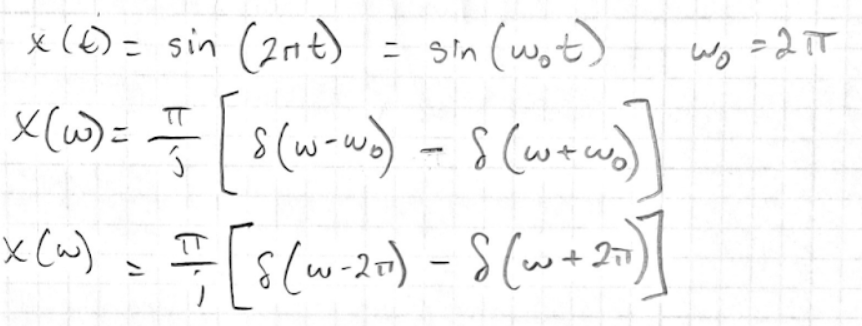 x(t) = sin (2πt) = sin (ω₀t) ω₀ = 2π
X(ω) = π/j [δ(ω-ω₀) - δ(ω+ω₀)]
X(ω) = π/j [δ(ω-2π) - δ(ω+2π)]